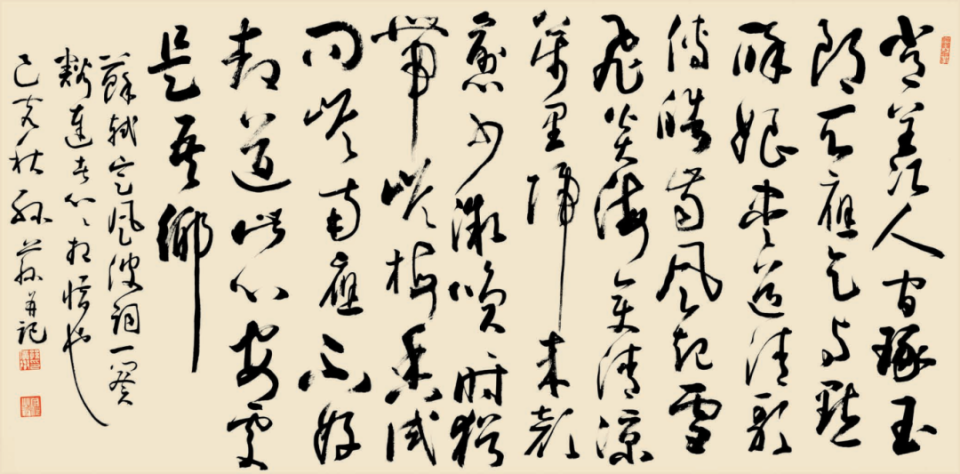 常羨人間琢玉
郎天應乞与點
酥娘盡道清歌
傳皓齒風起雪
飛炎海變清涼
萬里歸來顏
愈少微笑時猶
帶嶺梅香試
問嶺南應不好
却道此心安處
是吾鄉
蘇軾定風波詞一闋
豁達者心相悟也
己亥秋孫並記